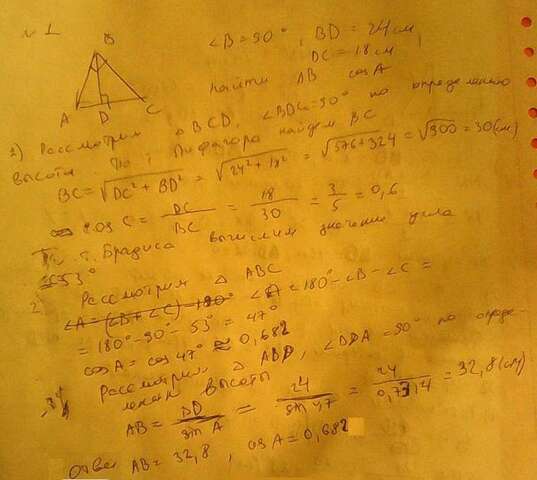 № 1
B
∠B = 90°, BD = 24 см
DC = 18 см
Найти AB cosA
A D C
1) Рассмотрим △BCD, ∠BDC = 90° по определению
высоты. По т. Пифагора найдем BC
BC = √DC² + BD² = √24² + 18² = √576 + 324 = √900 = 30 (см)
cos C = DC/BC = 18/30 = 3/5 = 0,6
По т. Брадиса вычислим значение угла
≈ 53°
2. Рассмотрим △ ABC
∠A = (∠B + ∠C) - 180° ∠A = 180° - ∠B - ∠C =
= 180° - 90° - 53° = 47°
cosA = cos 47° ≈ 0,682
Рассмотрим △ ABD, ∠BDA = 90° по опреде-
лению высоты
AB = BD/sin A = 24/sin 47 = 24/0,7314 = 32,8 (см)
Ответ AB = 32,8, cosA = 0,682